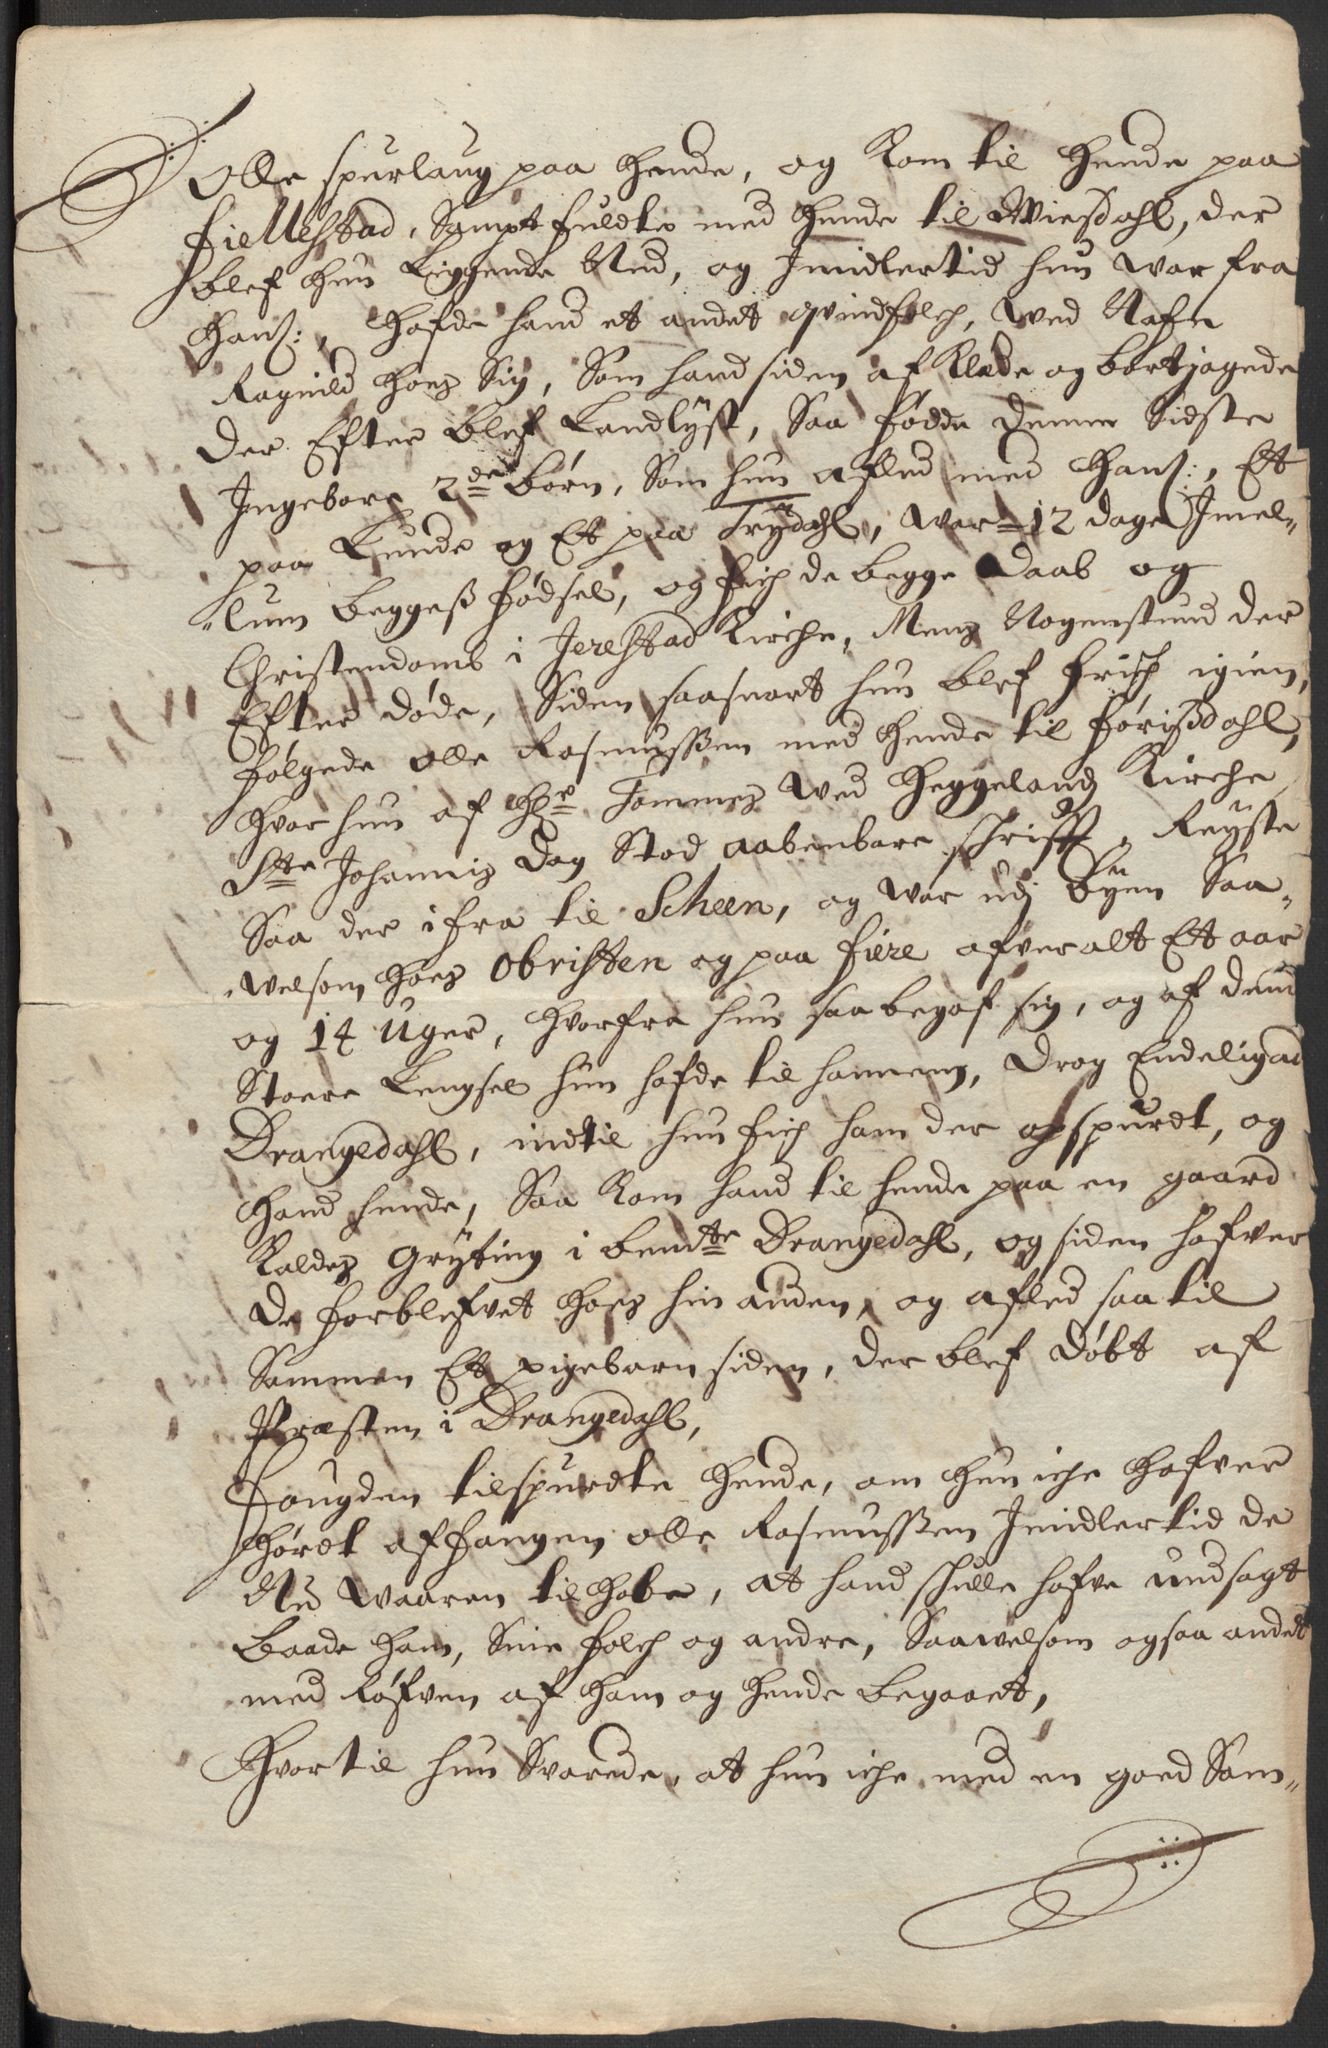 Olle spurlaug paa hende, og kom til hende paa
Fiellestad, Sampt fuldte med hende til Wiesdahl, der
blef hun Liggende Ned, og Imidlertid hun war fra
ham:, Hafde hand et andet qvindfolch, wed Nafn
Ragnild hoes Sig, Som hand siden af klæde og bortjagede
der Efter blef Landlyst, Saa fødde denne Sidste
Ingebore 2de børn, Som hun afled med ham:, Et
paa Lunde og Et paa Trydahl, war 12 dage Imel„
„lum beggeß fødsel, og fich de begge Daab og
Christendomb i Jerestad Kirche, Mens Nogenstund der
Efter døde, Siden saasnart hun blef frisch igien,
følgede Olle Rasmußen med hende til førißdahl,
Hvor hun af Hr Tommes wed Heggelands Kirche
Ste Johannis dag Stod aabenbare schrifft, Reyste
Saa der ifra til Scheen, og war udj byen Saa„
„welsom hoes Obristen og paa fiære afveralt Et aar
og 14 Uger, Hvorfra hun saa begaf sig, og af dend
Stoere Lengsel hun hafde til hannem, drog Endelig ad
Drangedahl, indtil hun fich ham der opspurdt, og
hand hende, Saa kom hand til hende paa en gaard
Kaldes Gryting i bemte Drangedahl, og siden hafver
de forblefvet hoes hin anden, og afled saa til
Sammen Et pigebarn siden, der blef døbt af
Præsten i Drangedahl,
Fougden tilspurdte hende, om hun iche hafver
hørdt af fangen Olle Rasmußen Imidlertid de
Nu waaren tilhobe, at hand schulle hafve undsagt
baade ham, Sine folch og andre, Saawelsom ogsaa andet
med Røfven af ham og hende begaaet,
Hvortil hun Svarede, at hun iche med en goed Sam„